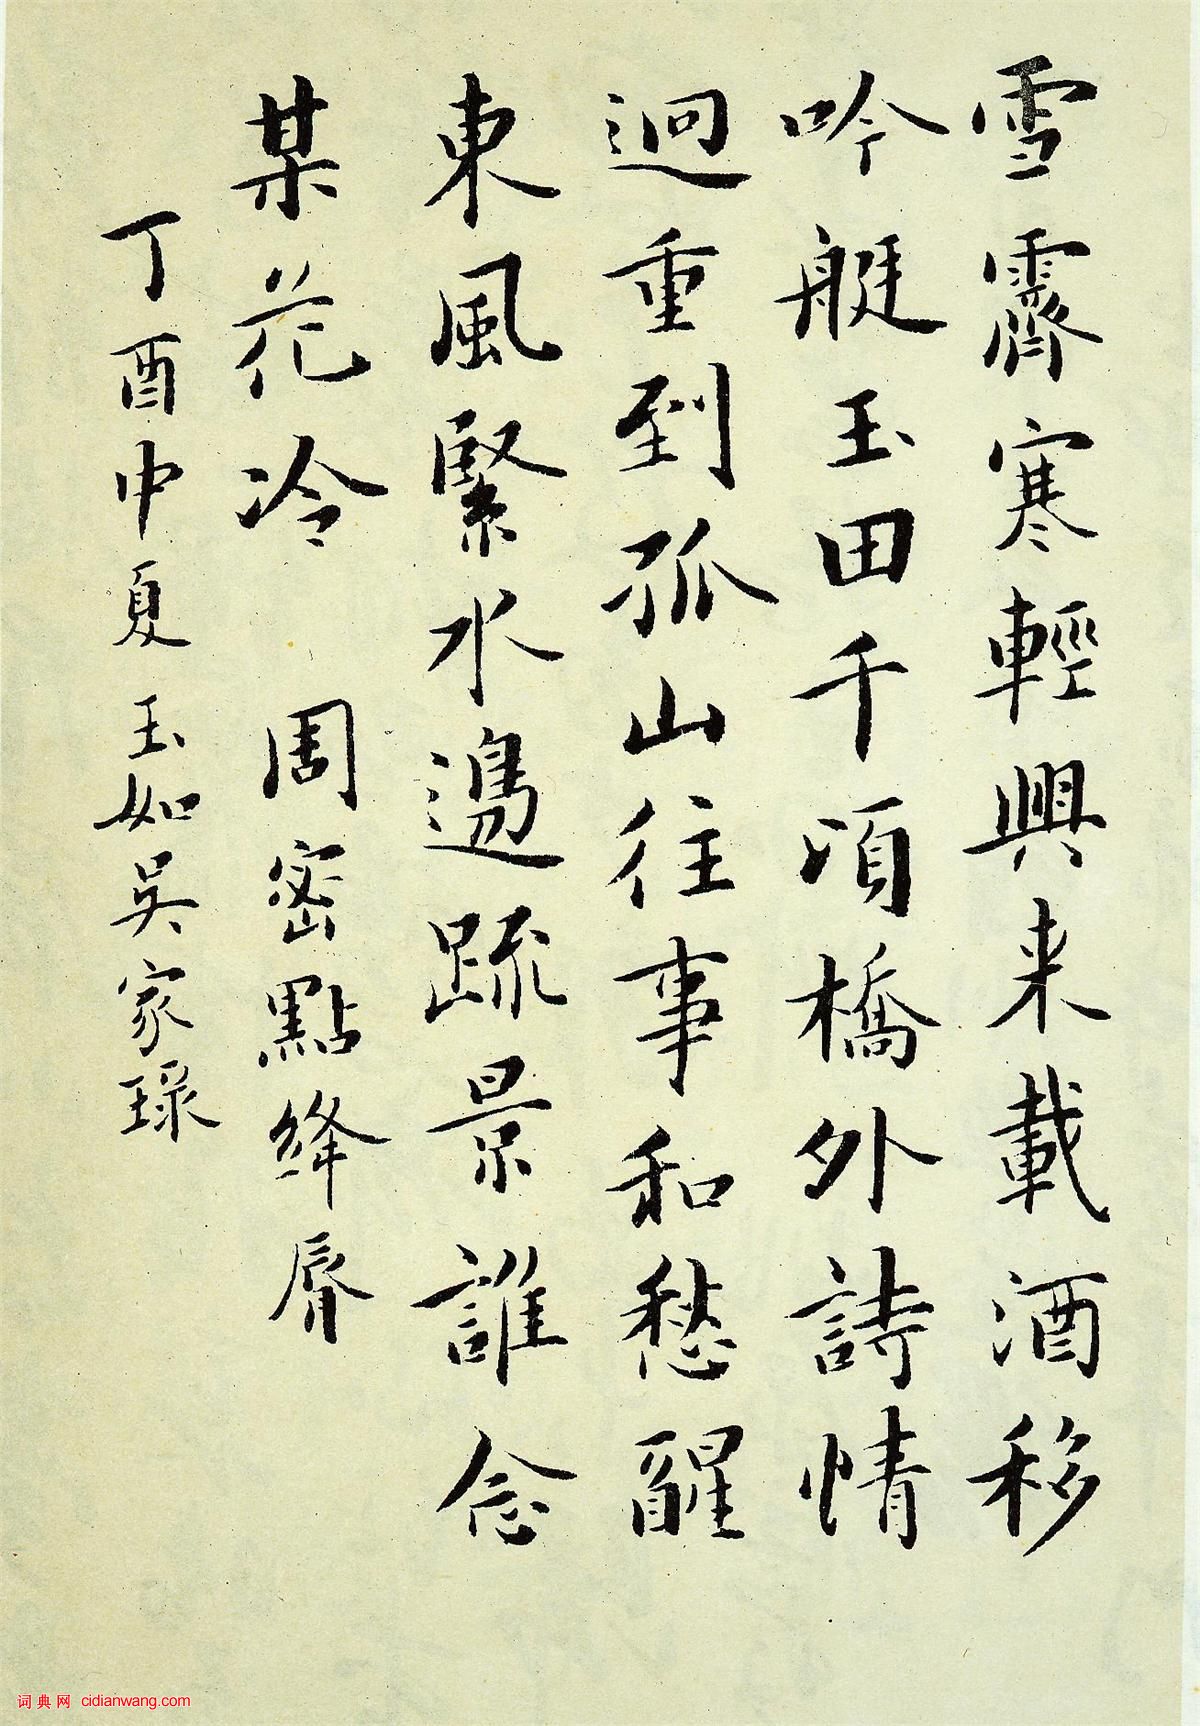 雪霽寒輕興来載酒移
吟艇玉田千頃橋外詩情
迥重到孤山往事和愁醒
東風緊水邊疏景誰念
某花冷 周密點絳脣
丁酉中夏玉如吳家琭
词典网 cidianwang.com